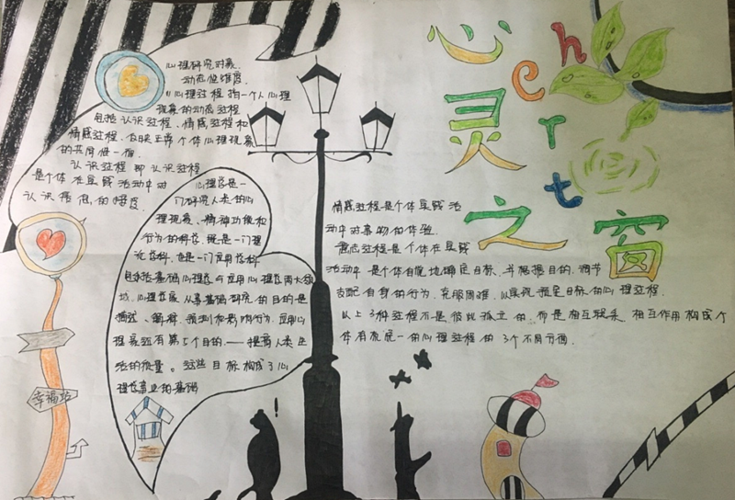 心灵之窗
hert
心理研究对象
动态性维度
1)心理过程指一个人心理
现象的动态过程
包括认识过程、情感过程和
情感过程、反映正常个体心理现象
的共同性一面
认识过程即认识过程
是个体在实践活动中对
认识信息的
心理学是一
门研究人类的心
理现象、精神功能和
行为的科学,既是一门理
论学科,也是一门应用学科
包括基础心理学与应用心理学两大领
域,心理学家从事基础研究的目的是
描述、解释、预测和影响行为,应用心
理学还有第5个目的——提高人类生
活的质量。这些目标构成了心
理学事业的基础
情感过程是个体实践活
动中对事物的体验
意志过程是个体在实践
活动中是个体自觉地确定目标、并根据目的、调节
支配自身的行为,克服困难,以实现预定目标的心理过程.
以上3种过程不是彼此孤立的,而是相互联系,相互作用构成个
体有机统一的心理过程的3个不同方面.
幸福站
!